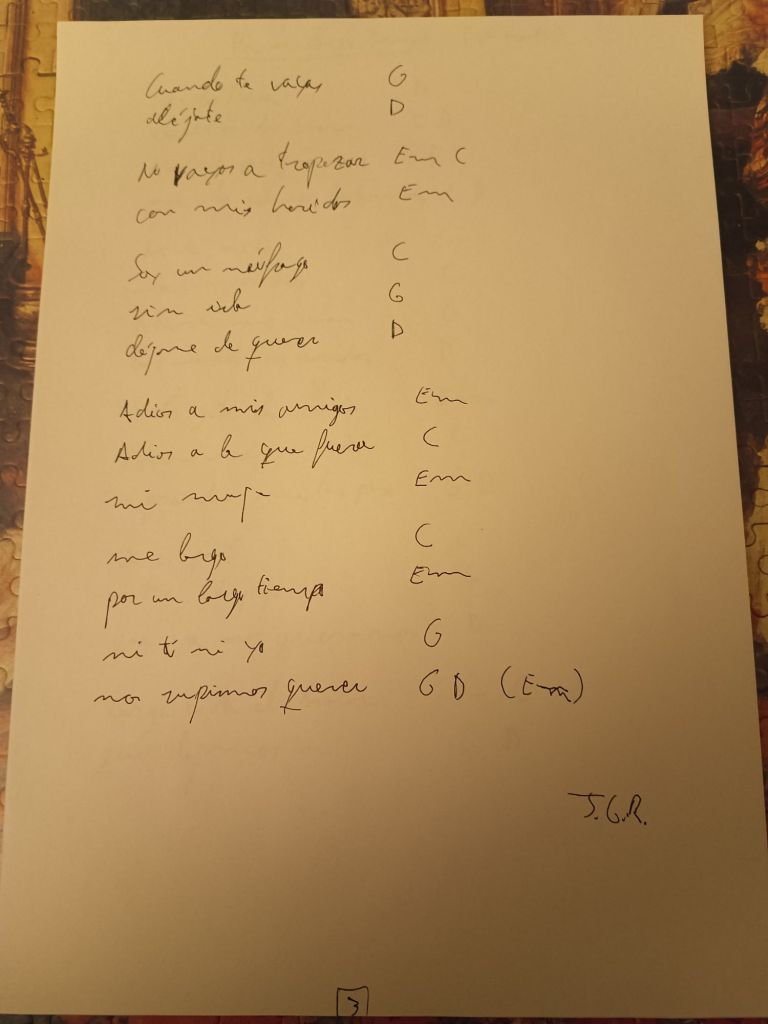 Cuando te vayas G
aléjate D
No vayas a tropezar Em C
con mis heridas Em
Soy un náufrago C
sin isla G
déjame de querer D
Adios a mis amigos Em
Adios a la que fuera C
mi mujer Em
me largo C
por un largo tiempo Em
ni tú ni yo G
nos supimos querer G D (Em)
J.G.R.
3